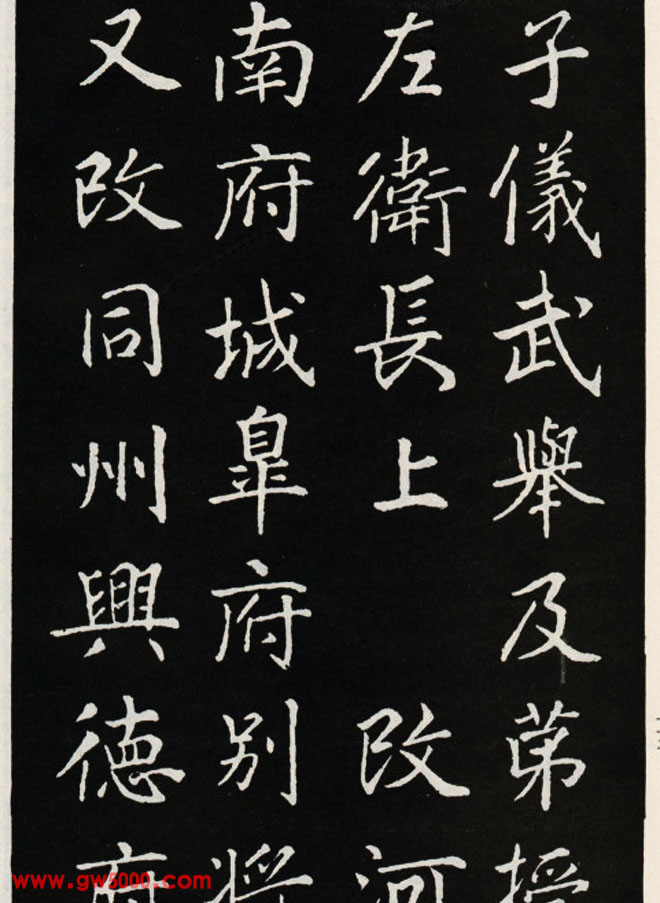 子儀武舉及苐授
左衛長上 改河
南府城皐府别將
又改同州興徳府
www.gw5000.com